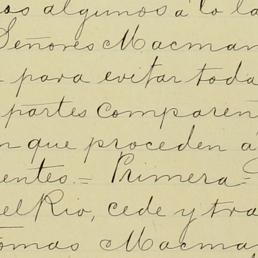 os algunos á lo la
Señores Macman
para evitar toda
partes comparen
n que proceden á
entes = Primera =
el Rio, cede y tra
Tomas Macma